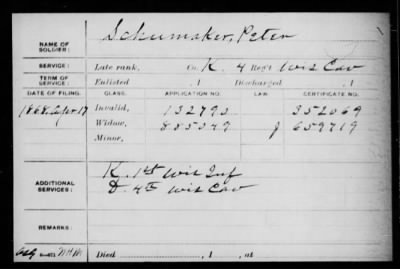 Schumaker, Peter
NAME OF SOLDIER:
SERVICE: Late rank, Co. K, 4 Reg't Wis Cav
TERM OF SERVICE: Enlisted , 1 Discharged , 1
DATE OF FILING. CLASS. APPLICATION NO. LAW. CERTIFICATE NO.
1868 17 Invalid, 352069
Widow, 659719
Minor,
ADDITIONAL SERVICES: K. 1st Wis Inf
D. 4th Wis Cav
REMARKS:
Died , 1 , at